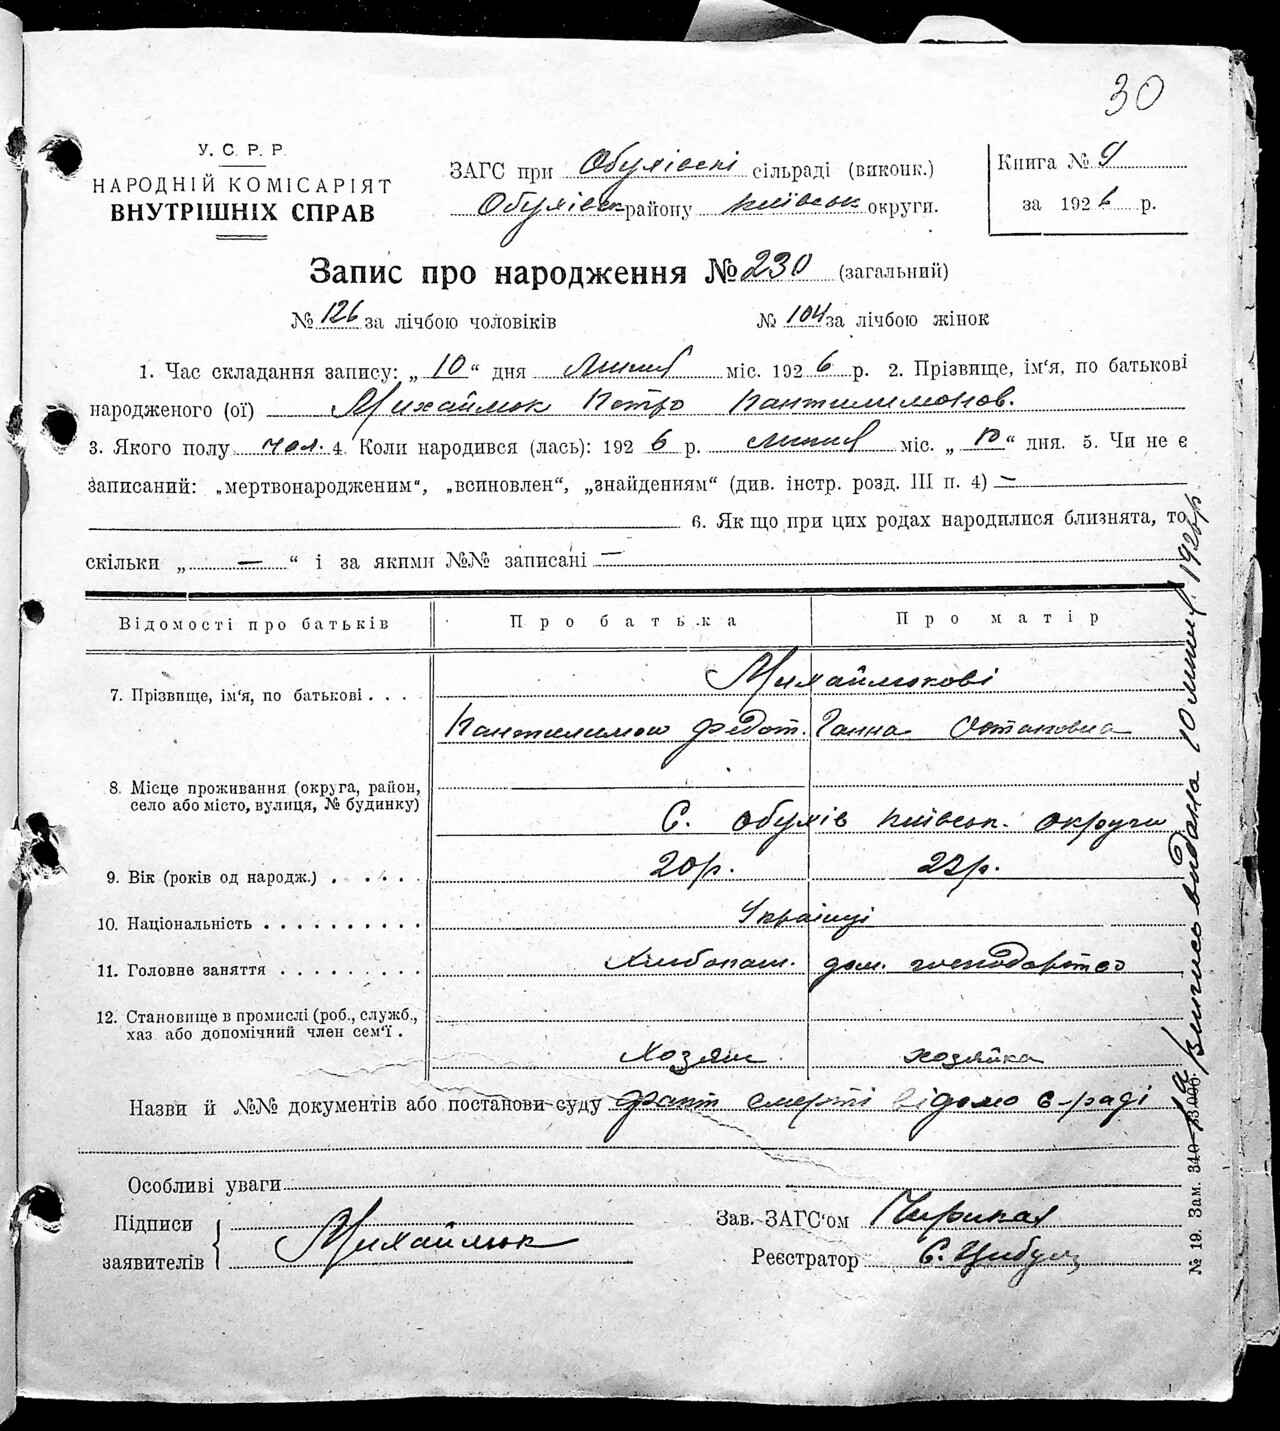 30
У. С. Р. Р.
НАРОДНІЙ КОМІСАРІЯТ
ВНУТРІШНІХ СПРАВ
ЗАГС при Обухівські сільраді (виконк.)
Обухівськ району Київськ округи.
Книга № 9
за 1926 р.
Запис про народження № 230 (загальний)
№ 126 за лічбою чоловіків № 104 за лічбою жінок
1. Час складання запису: „10“ дня Липня міс. 1926 р. 2. Прізвище, ім‘я, по батькові
народженого (ої) Михаймюк Петро Пантилимонов.
3. Якого полу чол. 4. Коли народився (лась): 1926 р. липня міс. „10“ дня. 5. Чи не є
записаний: „мертвонародженим“, „всиновлен“, „знайденням“ (див. інстр. розд. III п. 4) —
6. Як що при цих родах народилися близнята, то
скільки „ — “ і за якими №№ записані —
Відомості про батьків Про батька Про матір
7. Прізвище, ім‘я, по батькові . . . Михаймюкові
Пантилимон Федот. Ганна Остаповна
8. Місце проживання (округа, район,
село або місто, вулиця, № будинку) С. Обухів Київськ. округи
9. Вік (років од народж.) . . . . . 20 р. 22 р.
10. Національність . . . . . . . . . . Українці
11. Головне заняття . . . . . . . . . Хлибопаш. дом. господарство
12. Становище в промислі (роб., служб.,
хаз або допомічний член сем‘ї . Хозяін. хозяйка
Назви й №№ документів або постанови суду факт смерті відомо с-раді
Особливі уваги
Підписи
заявителів Михаймюк
Зав. ЗАГС‘ом
Реєстратор Є. Цибул
Випись видана 10 липня 1926 р
№ 19. Зам. 340